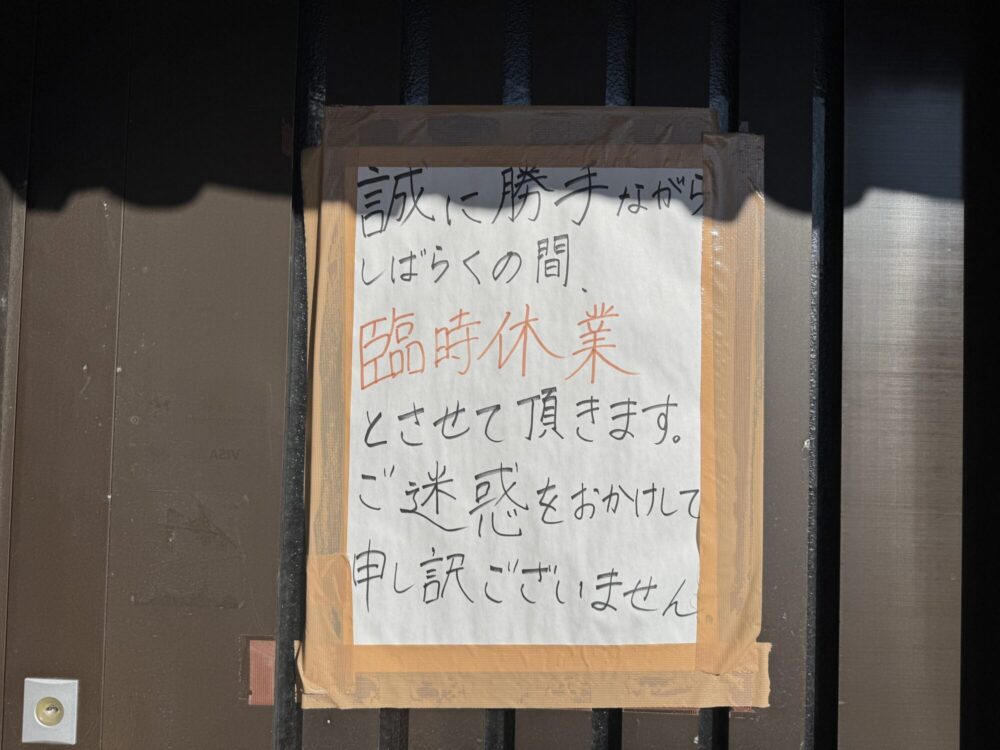 誠に勝手ながら
しばらくの間、
臨時休業
とさせて頂きます。
ご迷惑をおかけして
申し訳ございません
VISA